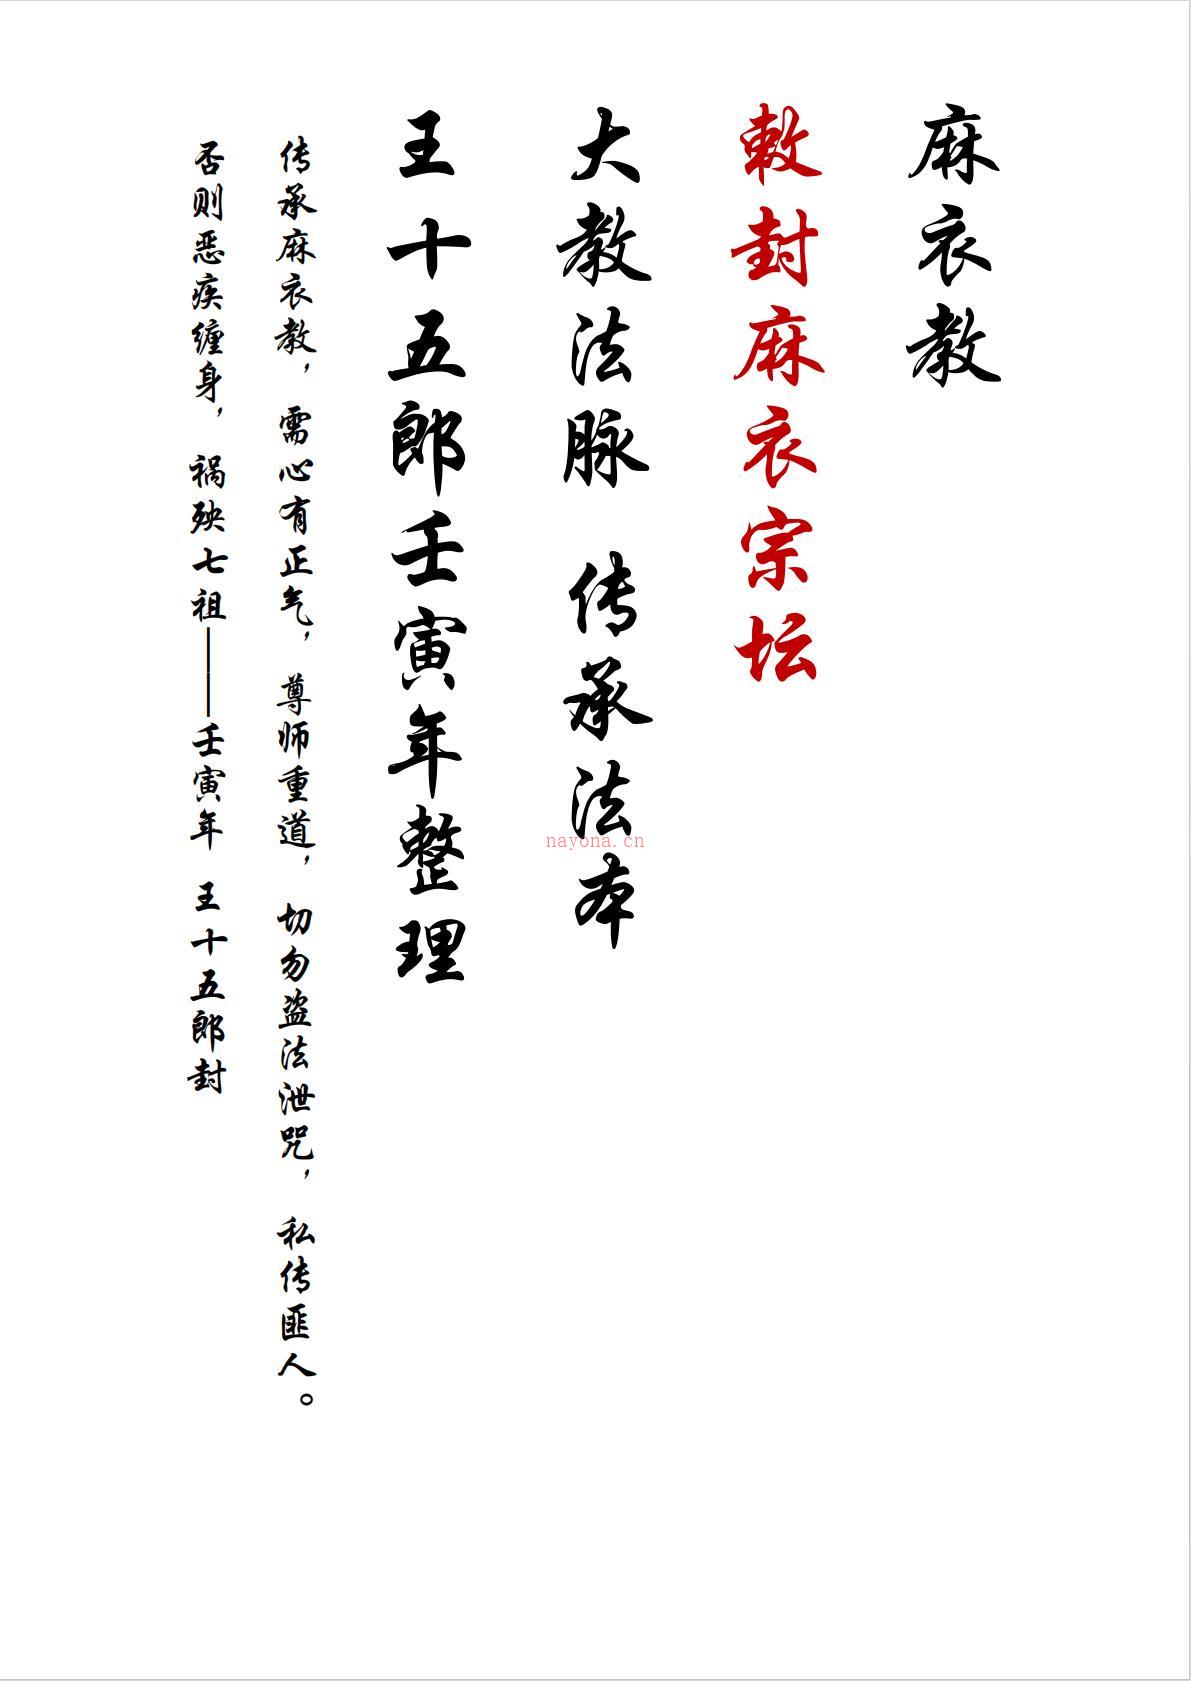 麻衣教
敕封麻衣宗坛
大教法脉 传承法本
王十五郎壬寅年整理
传承麻衣教，需心有正气，尊师重道，切勿盗法泄咒，私传匪人。
否则恶疾缠身，祸殃七祖——壬寅年 王十五郎封
nayona.cn